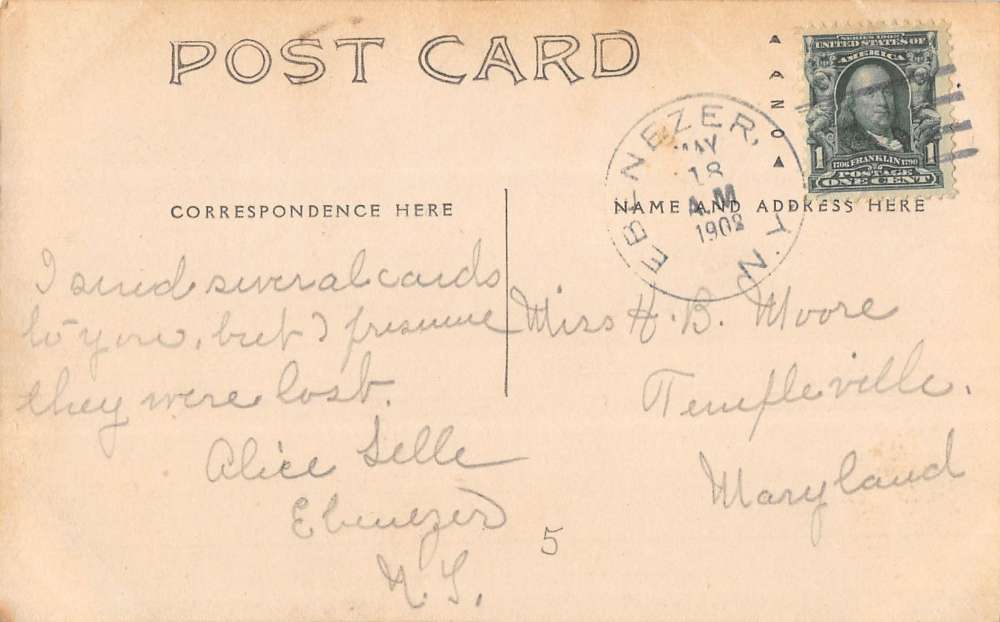 POST CARD
AZO
SERIES 1902
UNITED STATES OF
AMERICA
1706 FRANKLIN 1790
1 1
POSTAGE
ONE CENT
EBENEZER, N.Y.
MAY
18
A.M
1908
CORRESPONDENCE HERE
NAME AND ADDRESS HERE
I send several cards
to you, but I presume
they were lost.
Alice Selle
Ebenezer
N.Y.
5
Miss H. B. Moore
Templeville.
Maryland